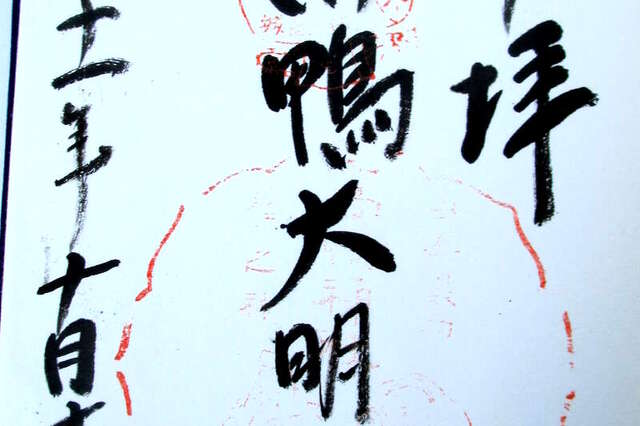 拝
鴨大明
十一年十月